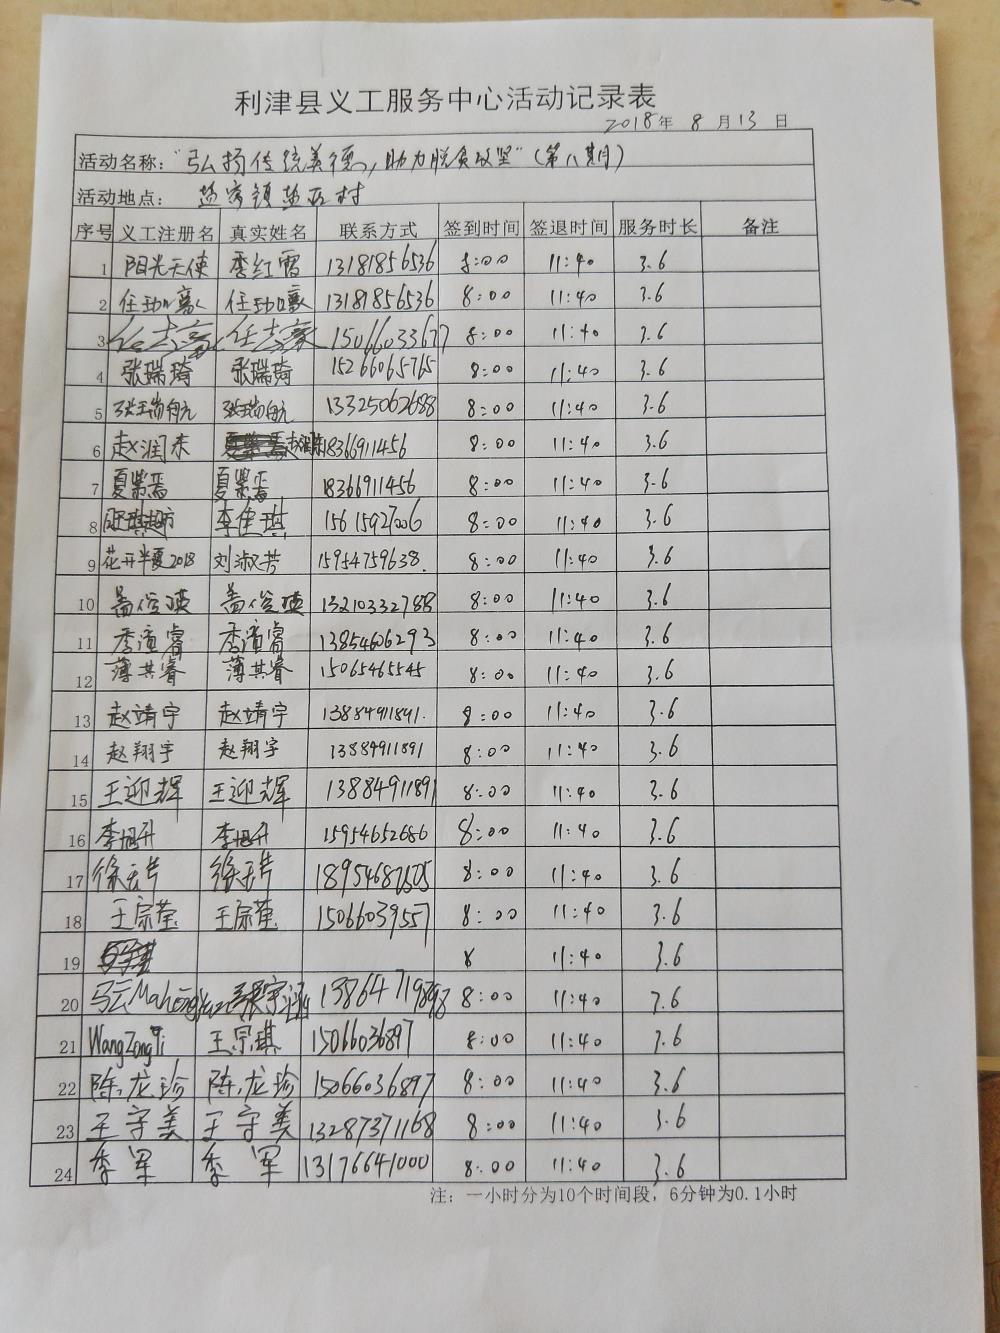 利津县义工服务中心活动记录表
2018年 8 月 13 日
活动名称："弘扬传统美德，助力脱贫攻坚"（第八期）
活动地点：盐窝镇盐 村
序号 义工注册名 真实姓名 联系方式 签到时间 签退时间 服务时长 备注
1 阳光天使 李红霞 13181856536 8:00 11:40 3.6
2 13181856536 8:00 11:40 3.6
3 8:00 11:40 3.6
4 张瑞琦 张瑞琦 15266065765 8:00 11:40 3.6
5 张瑞航 张瑞航 13325062688 8:00 11:40 3.6
6 赵润东 赵润东 18366911456 8:00 11:40 3.6
7 夏紫焉 夏紫焉 18366911456 8:00 11:40 3.6
8 李佳琪 15615927006 8:00 11:40 3.6
9 花开半夏2018 刘淑芳 15954759638. 8:00 11:40 3.6
10 盖俊瑛 盖俊瑛 13210332788 8:00 11:40 3.6
11 李滨睿 李滨睿 13854606293 8:00 11:40 3.6
12 薄其睿 薄其睿 15065465545 8:00 11:40 3.6
13 赵靖宇 赵靖宇 13884911891. 8:00 11:40 3.6
14 赵翔宇 赵翔宇 13884911891 8:00 11:40 3.6
15 王迎辉 王迎辉 13884911891 8:00 11:40 3.6
16 李旭升 李旭升 15954652686 8:00 11:40 3.6
17 徐云芹 徐云芹 8:00 11:40 3.6
18 王宗莹 王宗莹 15066039557 8:00 11:40 3.6
19 8 11:40 3.6
20 8:00 11:40 3.6
21 WangZongqi 王宗琪 15066036897 8:00 11:40 3.6
22 陈龙珍 陈龙珍 15066036897 8:00 11:40 3.6
23 王守美 王守美 13287371168 8:00 11:40 3.6
24 李军 李军 13176641000 8:00 11:40 3.6
注：一小时分为10个时间段，6分钟为0.1小时